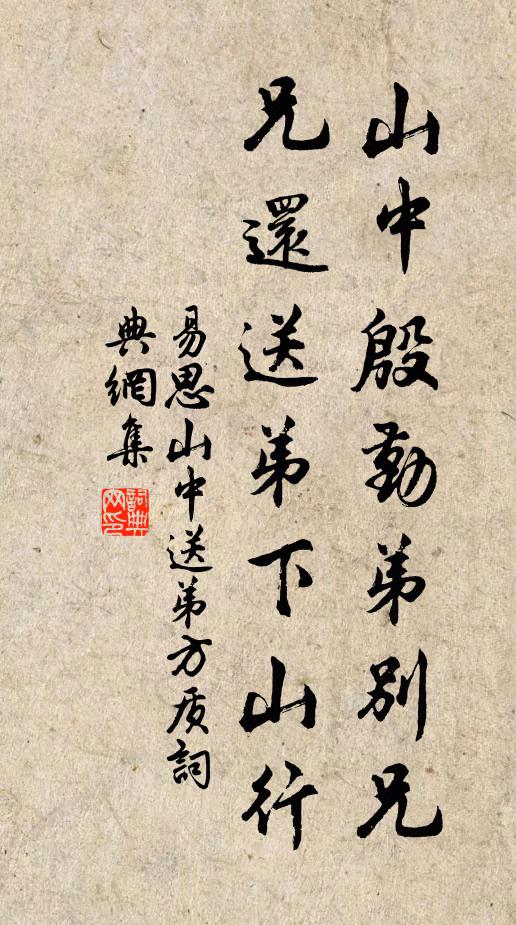 山中殷勤弟別兄
兄還送弟下山行
易思山中送弟方质詞
典網集
詞典
网印